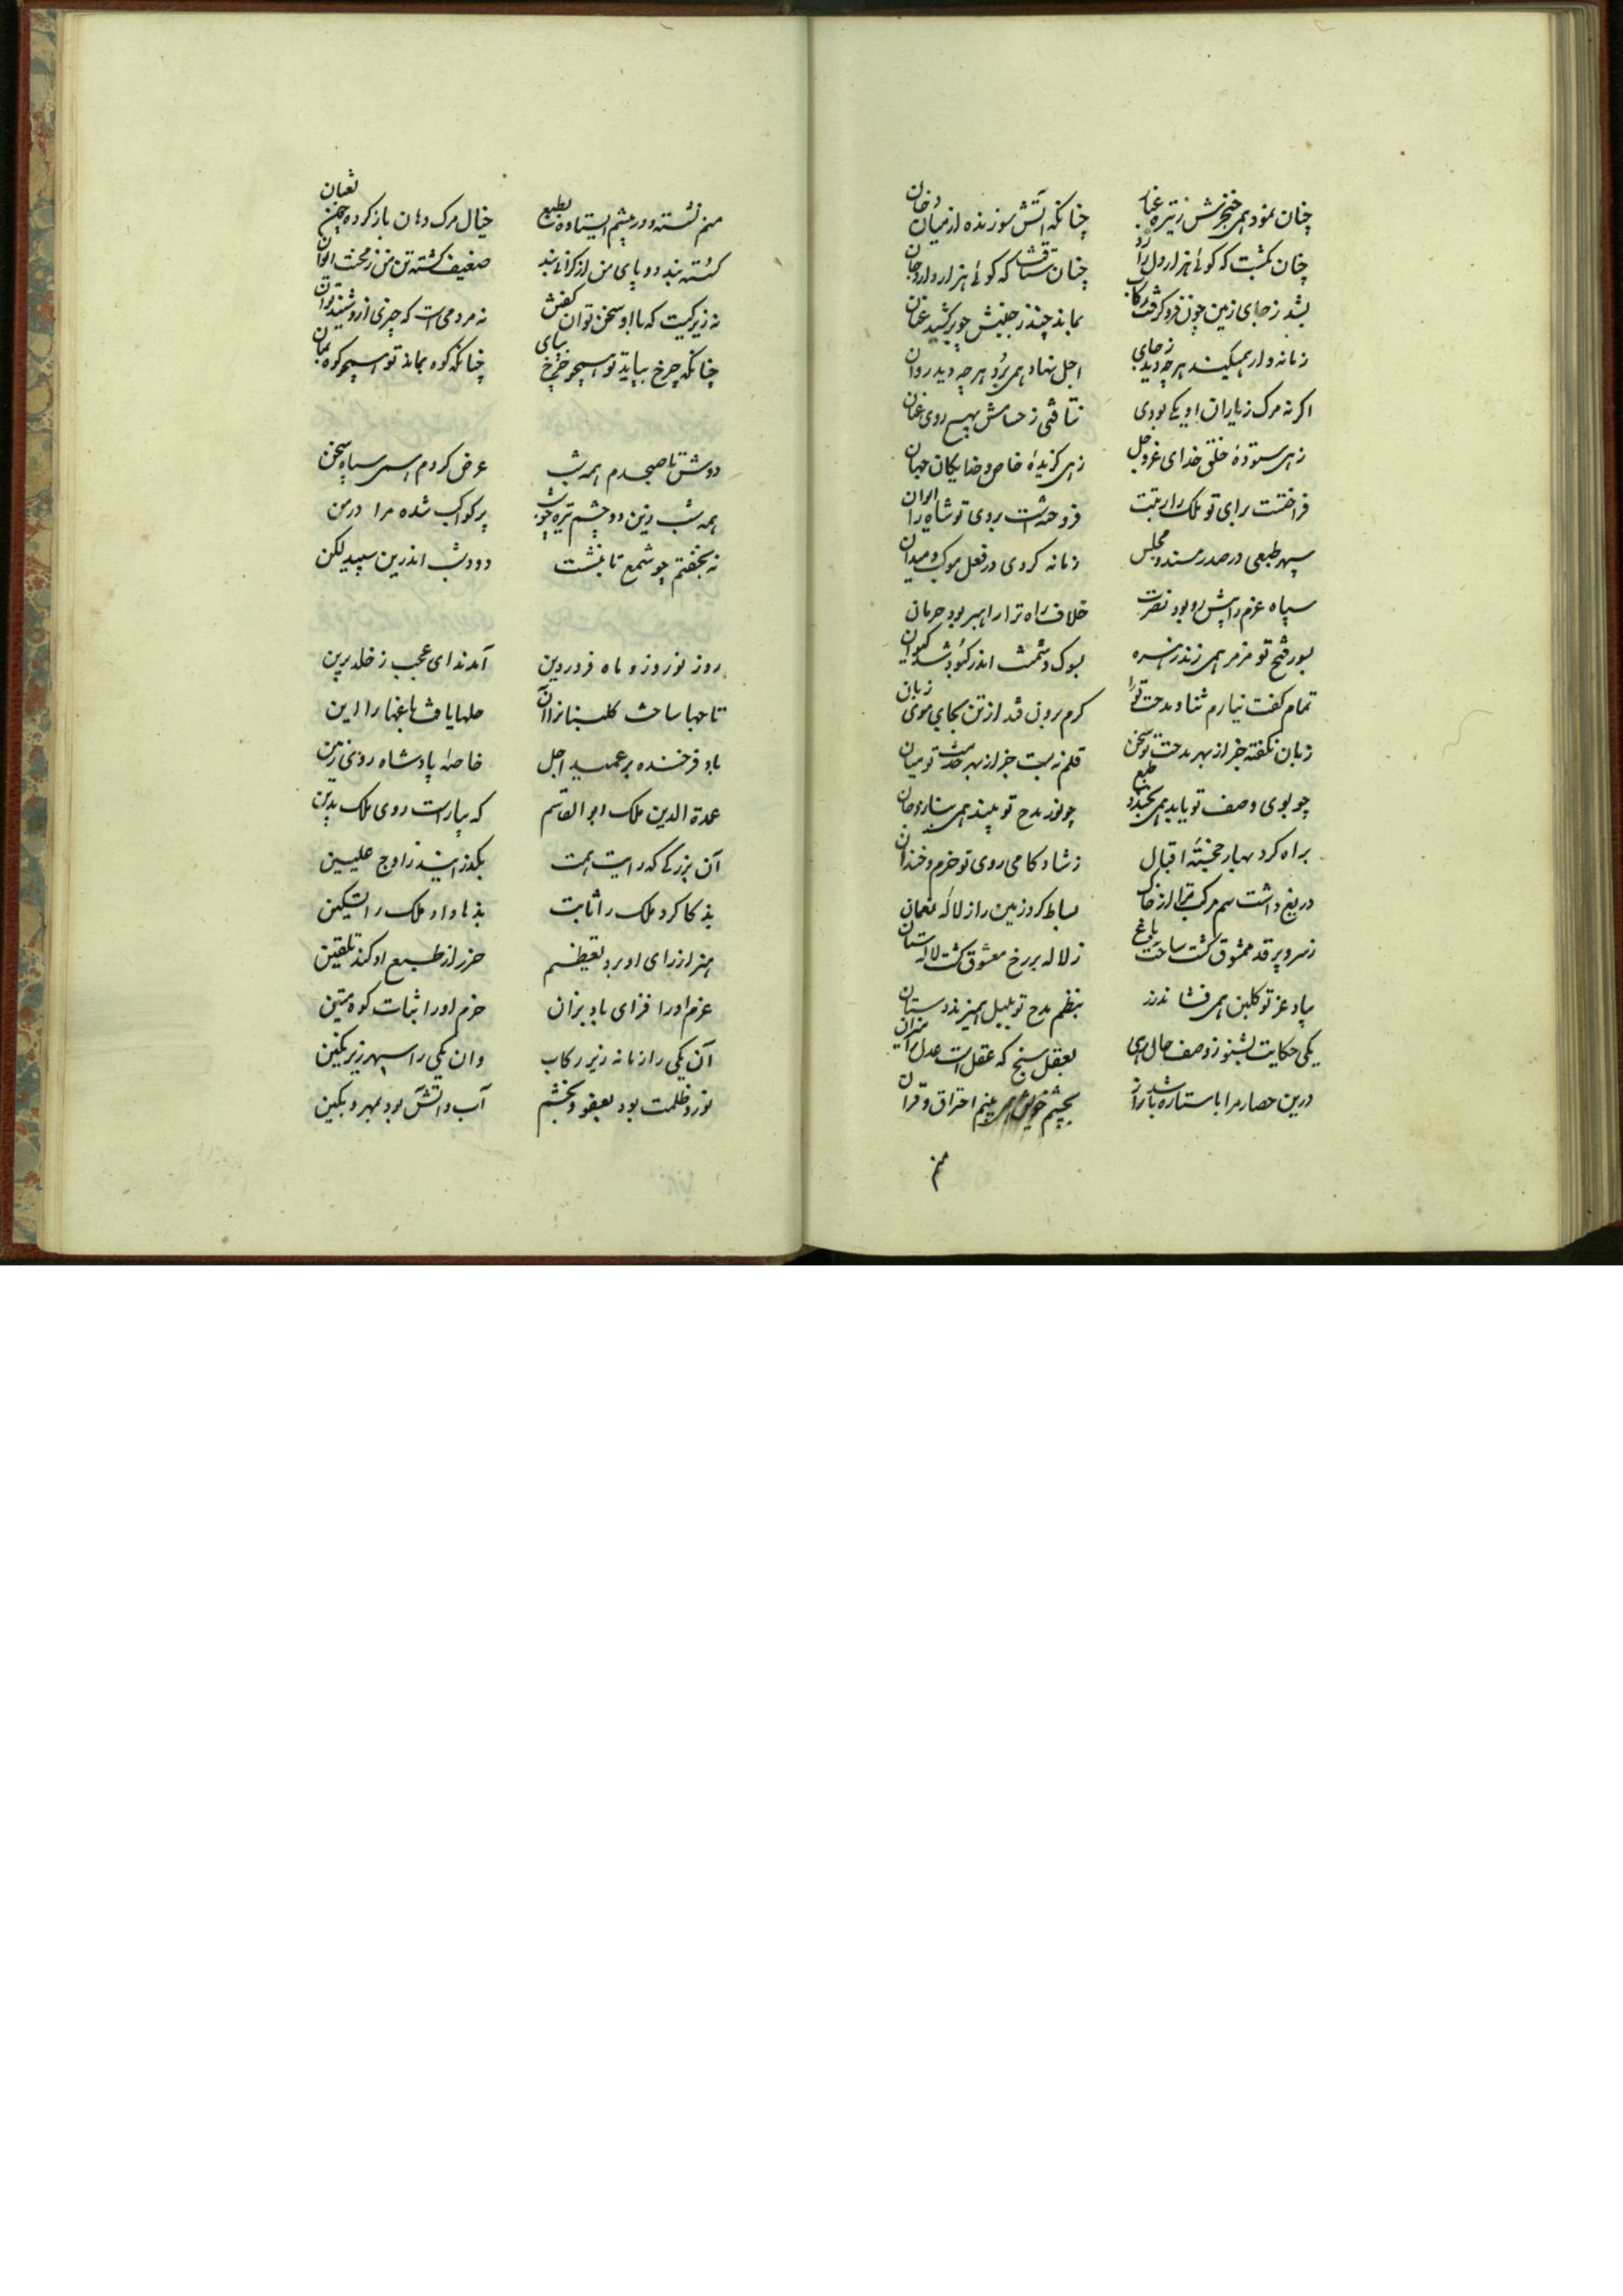 چنان نمود همی خنجرش ز تیره غبار چنانکه آتش سوزنده از میان دخان
چنان بگشت که گوئی هزار دل دارد چنان شتافت که گوئی هزار دارد جان
بشد ز جای زمین چون فرو گرفت رکاب بماند چرخ ز جنبش چو برکشید عنان
زمانه وار همیکند هر چه دید ز جای اجل نهاد همی برد هر چه دید روان
اگر نه مرگ ز یاران او یکی بودی نتافتی ز حسامش بهیچ روی عنان
زهی ستودهٔ خلق خدای عزوجل زهی گزیدهٔ خاص خدایگان جهان
فراختست برای تو ملک را رتبت فروختست بروی تو شاه را ایوان
سپهر طبعی در صدر مسند و مجلس زمانه کردی در فعل موکب و میدان
سپاه عزم ترا پیش رو بود نصرت خلاف راه ترا راهبر بود حرمان
بسور فتح تو مزمر همی زند زهره بسوک دشمنت اندر کبود شد کیوان
تمام گفت نیارم ثنا و مدحت تو را گرم برون قد از تن بجای موی زبان
زبان نگفته جز از بهر مدحت تو سخن قلم نبست جز از بهر خدمت تو میان
چو بوی وصف تو یابد همی بخندد طبع چو نور مدح تو بیند همی بنازد جان
براه کرد بهار خجستهٔ اقبال ز شادکامی روی تو خرم و خندان
دریغ داشت سم مرکب ترا از خاک بساط کرد زمین را ز لالهٔ نعمان
ز سرو پر قد معشوق گشت ساحت باغ ز لاله پر رخ معشوق گشت لاله‌ستان
بیاد عز تو گلبن همی فشاند زر بنظم مدح تو بلبل همیزند دستان
یکی حکایت بشنو ز وصف حال رهی بعقل سنج که عقل است عدل را میزان
درین حصار مرا با ستاره باشد راز بچشم خویش همی بینم احتراق و قران
منم
منم نشسته و در پیشم ایستاده بطبع خیال مرگ دهان باز کرده چون ثعبان
گسسته بند دو پای من از گرانی بند ضعیف گشته تن من ز محنت الوان
نه زیرکیست که با او سخن توان گفتن نه مردمی است که چیزی ازو شنید توان
چنانکه چرخ بپاید تو همچو چرخ بپای چنانکه کوه بماند تو همچو کوه بمان
دوش تا صبحدم همه شب عرض کردم همی سپاه سخن
همه شب زین دو چشم تیره چو شب پر کواکب شده مرا دامن
نه بخفتم چو شمع تا بنشست دود شب اندرین سپید لگن
روز نوروز و ماه فروردین آمدند ای عجب ز خلد برین
تاجها ساخت گلبنان را آن حلها بافت باغها را این
باد فرخنده بر عمید اجل خاصهٔ پادشاه روی زمین
عمدة الدین ملک ابوالقاسم که بیاراست روی ملک بدین
آن بزرگی که رایت همت بگذرانیند ز اوج علیین
بذکا کرد ملک را ثابت بذها داد ملک را تسکین
هنر از رای او برد تعظیم خرد از طبع او کند تلقین
عزم او را فزای باد بزان حزم او را ثبات کوه متین
آن یکی را زمانه زیر رکاب وان یکی را سپهر زیر نگین
نور و ظلمت بود بعفو و بخشم آب و آتش بود بمهر و بکین